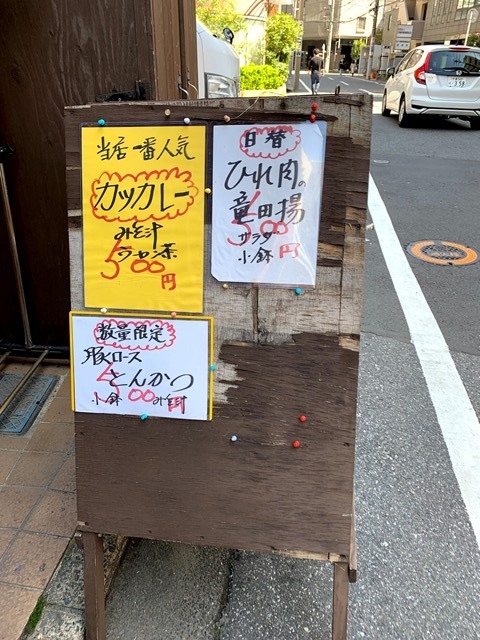 当店一番人気
カツカレー
みそ汁
ラーセン茶
500円
日替
ひれ肉の
竜田揚
サラダ
小鉢
500円
数量限定
豚ロース
とんかつ
小鉢 みそ汁
500円